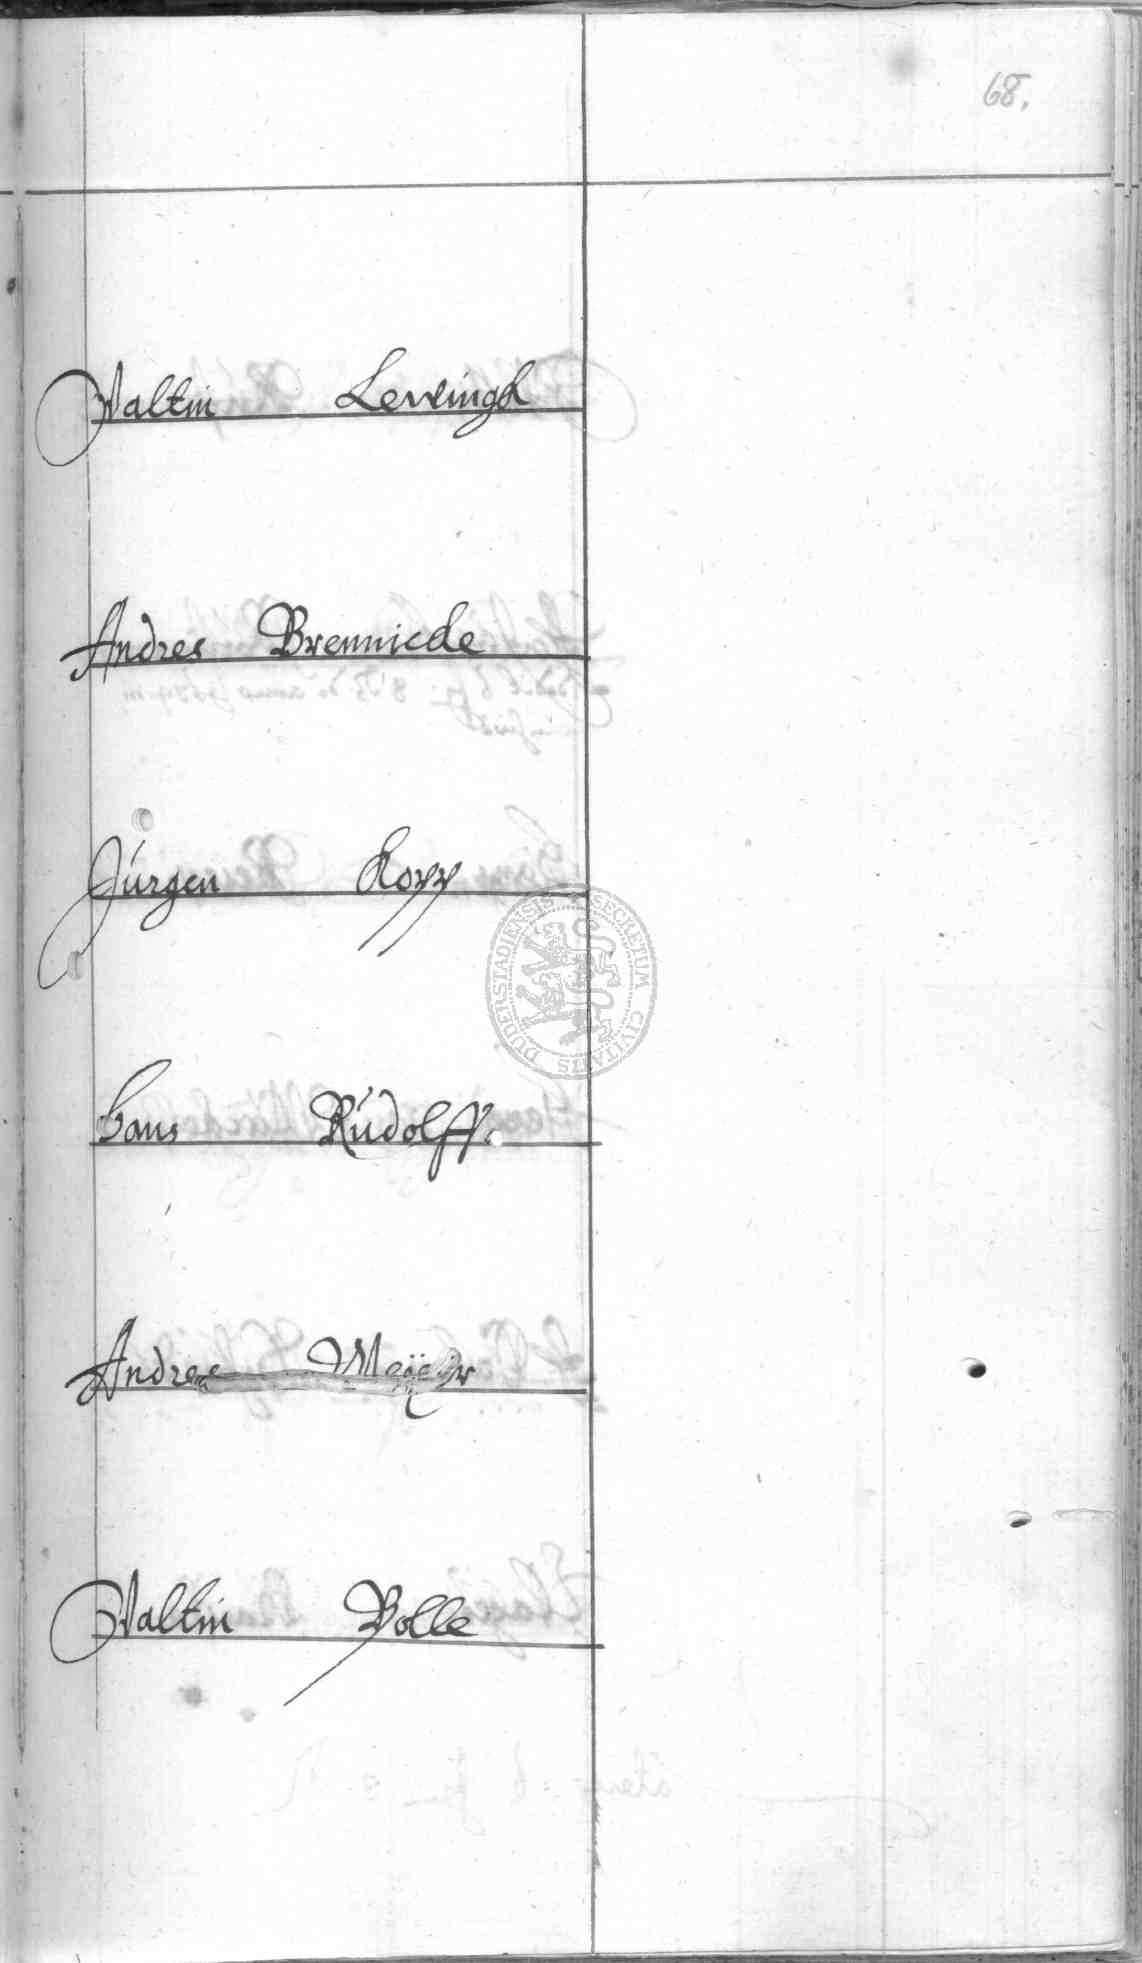 68.
Valtin Leweingk
Andres Brennicke
Jürgen Kopp
SECRETUM CIVITATIS DUDERSTADIENSIS
Hans Rudolff.
Andres Meÿer
Valtin Bolle